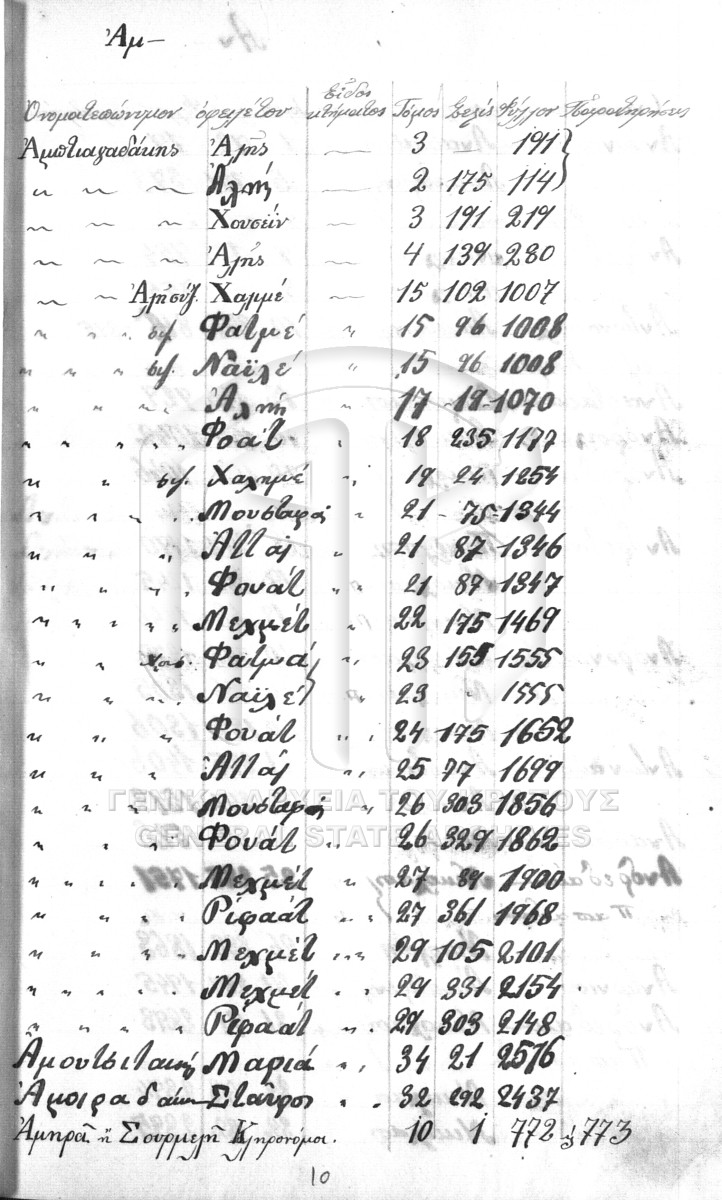 Ἀμ—
Ὀνοματεπώνυμον ὀφειλέτου Εἶδος κτήματος Τόμος Σελίς Φύλλον Παρατηρήσεις
Ἀμπτιαγαδάκης Ἀλῆς — 3 — 191
〃 〃 〃 Ἀλῆ — 2 175 114
〃 〃 〃 Χουσεΐν — 3 191 219
〃 〃 〃 Ἀλῆς — 4 139 280
〃 〃 Ἀλῆ συζ. Χαλμέ — 15 102 1007
〃 〃 〃 συζ. Φατμέ 〃 15 96 1008
〃 〃 〃 συζ. Ναϊλέ 〃 15 96 1008
〃 〃 〃 〃 Ἀλῆ 〃 17 -19- 1070
〃 〃 〃 〃 〃 Φοάτ 〃 18 235 1177
〃 〃 συζ. Χαλημέ 〃 19 24 1254
〃 〃 〃 〃 Μουσταφᾶ 21 - 75 - 1344
〃 〃 〃 〃 〃 21 87 1346
〃 〃 〃 〃 Φουάτ 〃 〃 21 87 1347
〃 〃 〃 〃 〃 〃 Μεχμέτ 〃 22 175 1469
〃 〃 Φατμά 〃 23 155 1555
〃 〃 〃 Ναϊλέ 〃 23 〃 1555
〃 〃 〃 Φουάτ 〃 〃 24 175 1652
〃 〃 〃 〃 25 77 1699
〃 〃 〃 Μουσταφᾶ 〃 26 303 1856
〃 〃 〃 Φουάτ 〃 26 329 1862
〃 〃 〃 〃 Μεχμέτ 〃 27 89 1900
〃 〃 〃 〃 Ριφαάτ 〃 〃 27 361 1968
〃 〃 〃 Μεχμέτ 〃 〃 29 105 2101
〃 〃 〃 〃 〃 Μεχμέτ 〃 〃 29 331 2154
〃 〃 〃 〃 Ριφαάτ 〃 29 303 2148
Ἀμουτσιτάκη Μαρία 〃 〃 34 21 2576
Ἀμοιραδάκη Σταῦρος 〃 〃 32 292 2437
Ἀμηρᾶ ἢ Σουρμελῆ Κληρονόμοι. 10 1 772 773
ΓΕΝΙΚΑ ΑΡΧΕΙΑ ΤΟΥ ΚΡΑΤΟΥΣ
GENERAL STATE ARCHIVES
10